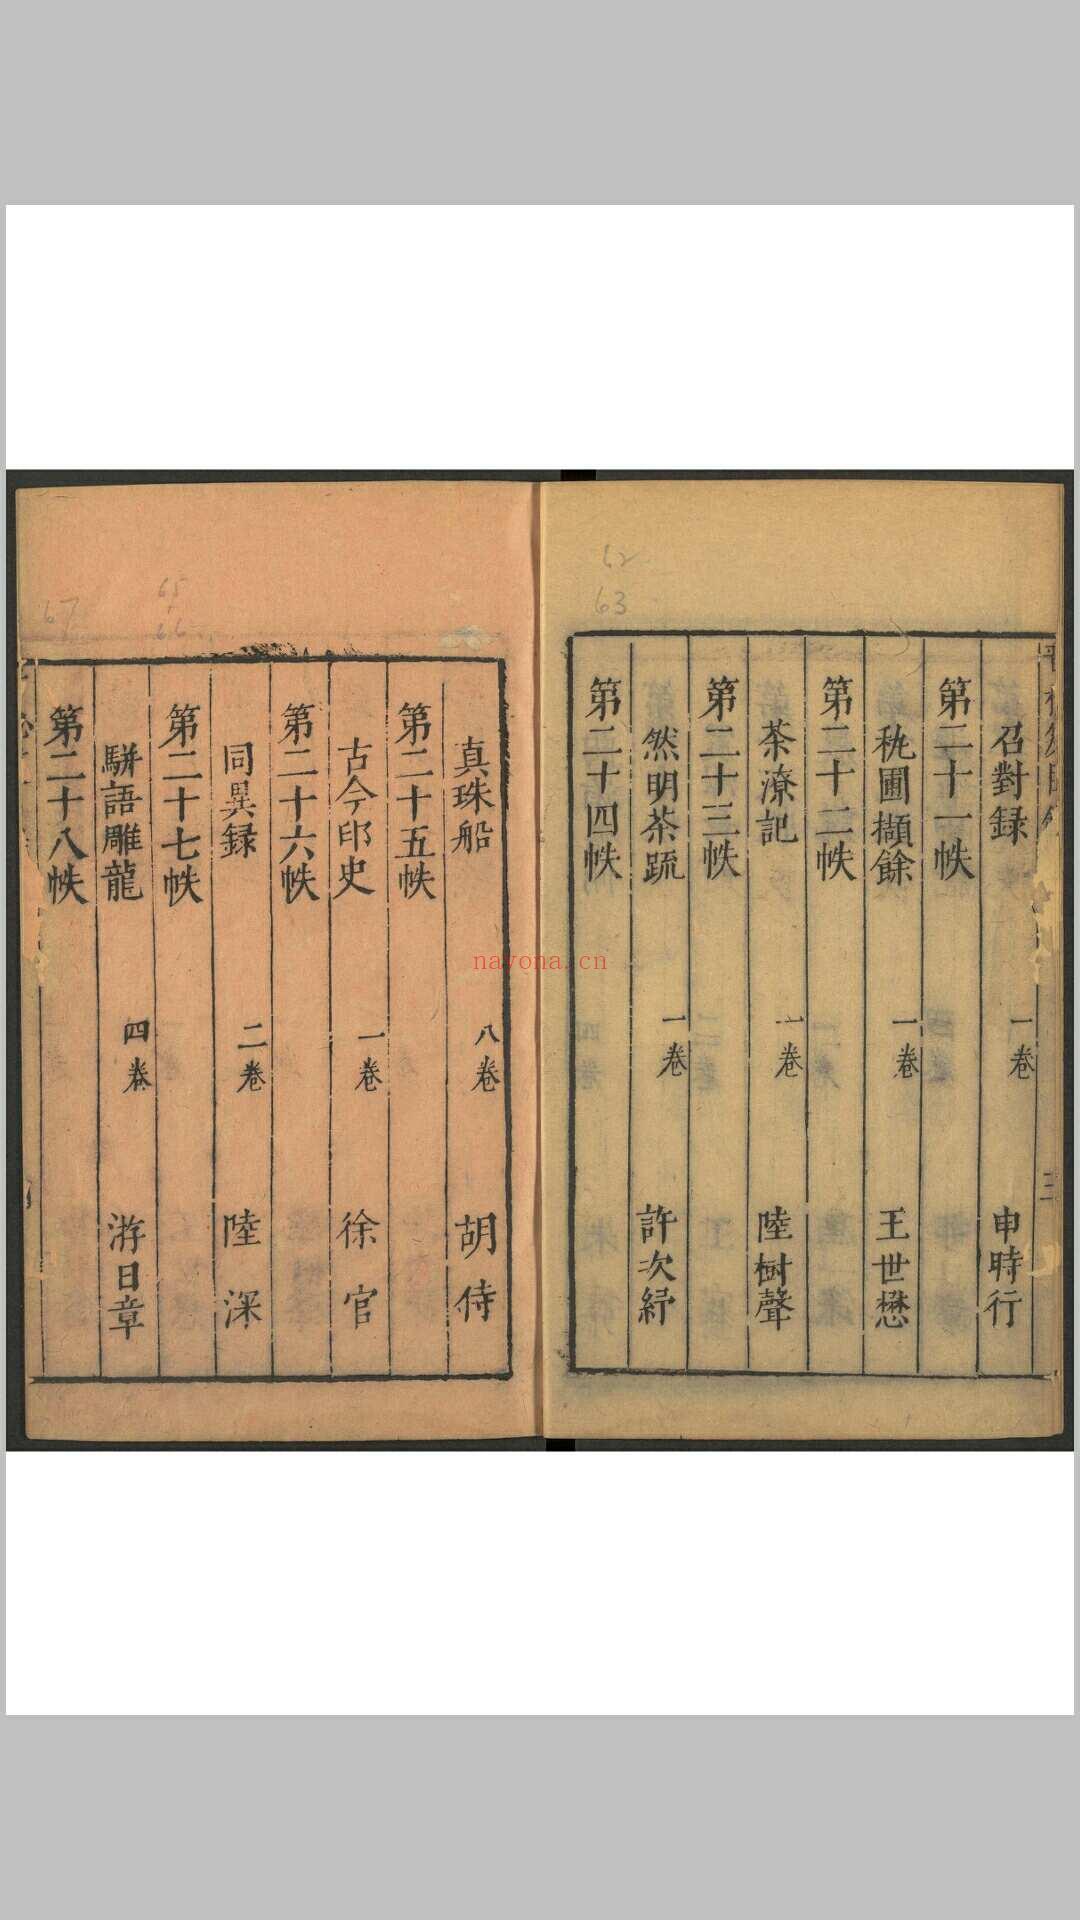 召對録 一卷 申時行
第二十一帙
秇圃擷餘 一卷 王世懋
第二十二帙
茶寮記 一卷 陸樹聲
第二十三帙
然明茶疏 一卷 許次紓
第二十四帙
真珠船 八卷 胡侍
第二十五帙
古今印史 一卷 徐官
第二十六帙
同異録 二卷 陸深
第二十七帙
駢語雕龍 四卷 游日章
第二十八帙
62
63
65
66
67
nayona.cn